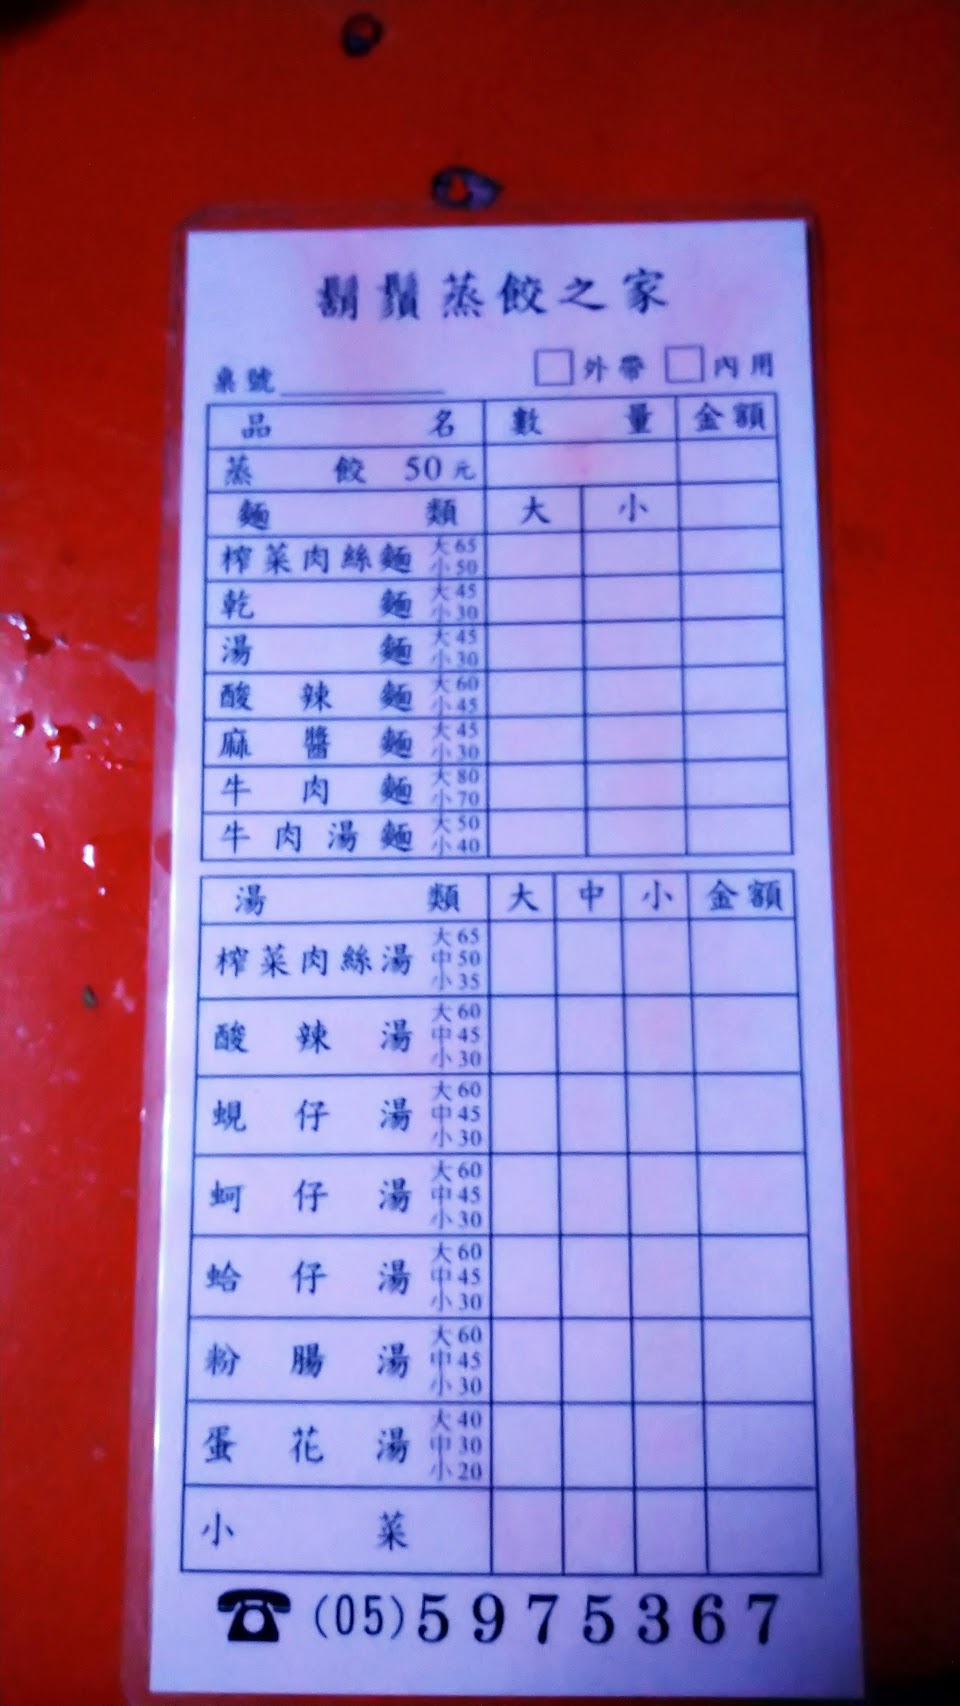 鬍鬚蒸餃之家
桌號 □外帶 □內用
品名 數量 金額
蒸餃 50元
麵類 大 小
榨菜肉絲麵 大65 小50
乾麵 大45 小30
湯麵 大45 小30
酸辣麵 大60 小45
麻醬麵 大45 小30
牛肉麵 大80 小70
牛肉湯麵 大50 小40
湯類 大 中 小 金額
榨菜肉絲湯 大65 中50 小35
酸辣湯 大60 中45 小30
蜆仔湯 大60 中45 小30
蚵仔湯 大60 中45 小30
蛤仔湯 大60 中45 小30
粉腸湯 大60 中45 小30
蛋花湯 大40 中30 小20
小菜
☎(05)5975367